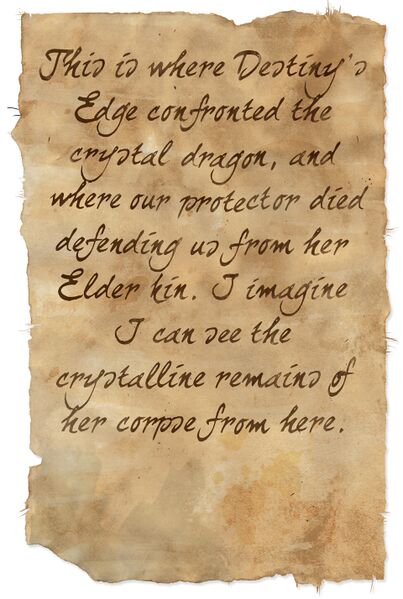 This is where Destiny's
Edge confronted the
crystal dragon, and
where our protector died
defending us from her
Elder kin. I imagine
I can see the
crystalline remains of
her corpse from here.